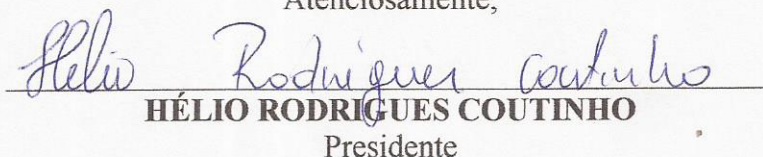 Atenciosamente,
Hélio Rodrigues Coutinho
HÉLIO RODRIGUES COUTINHO
Presidente